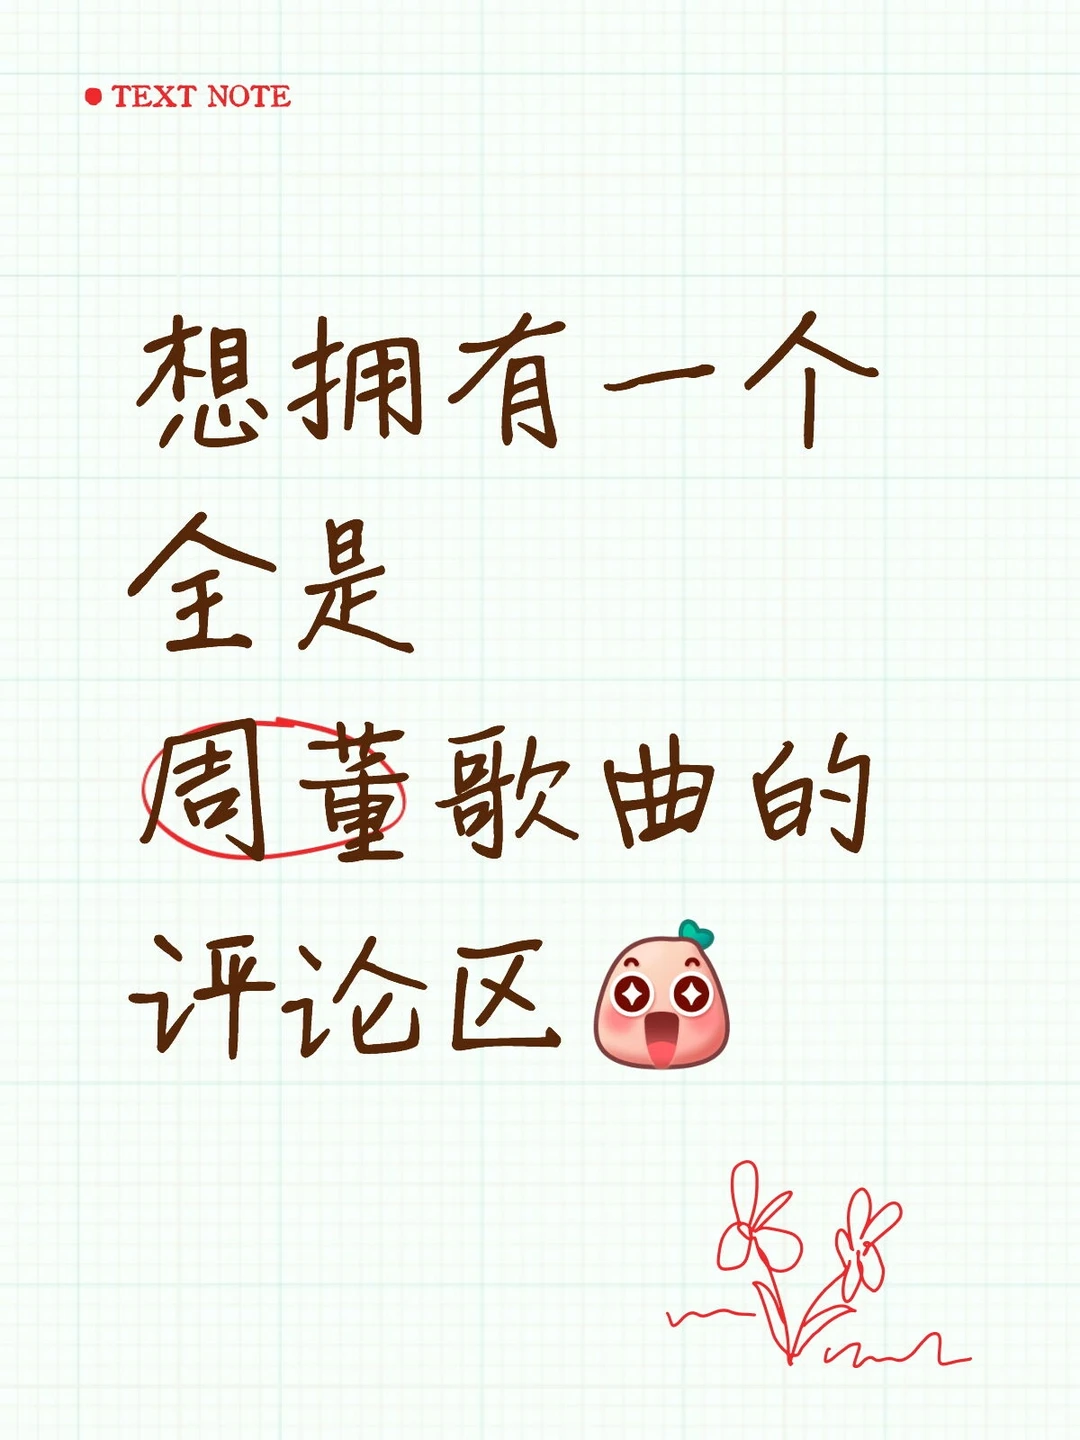 TEXT NOTE
想拥有一个
全是
周董歌曲的
评论区